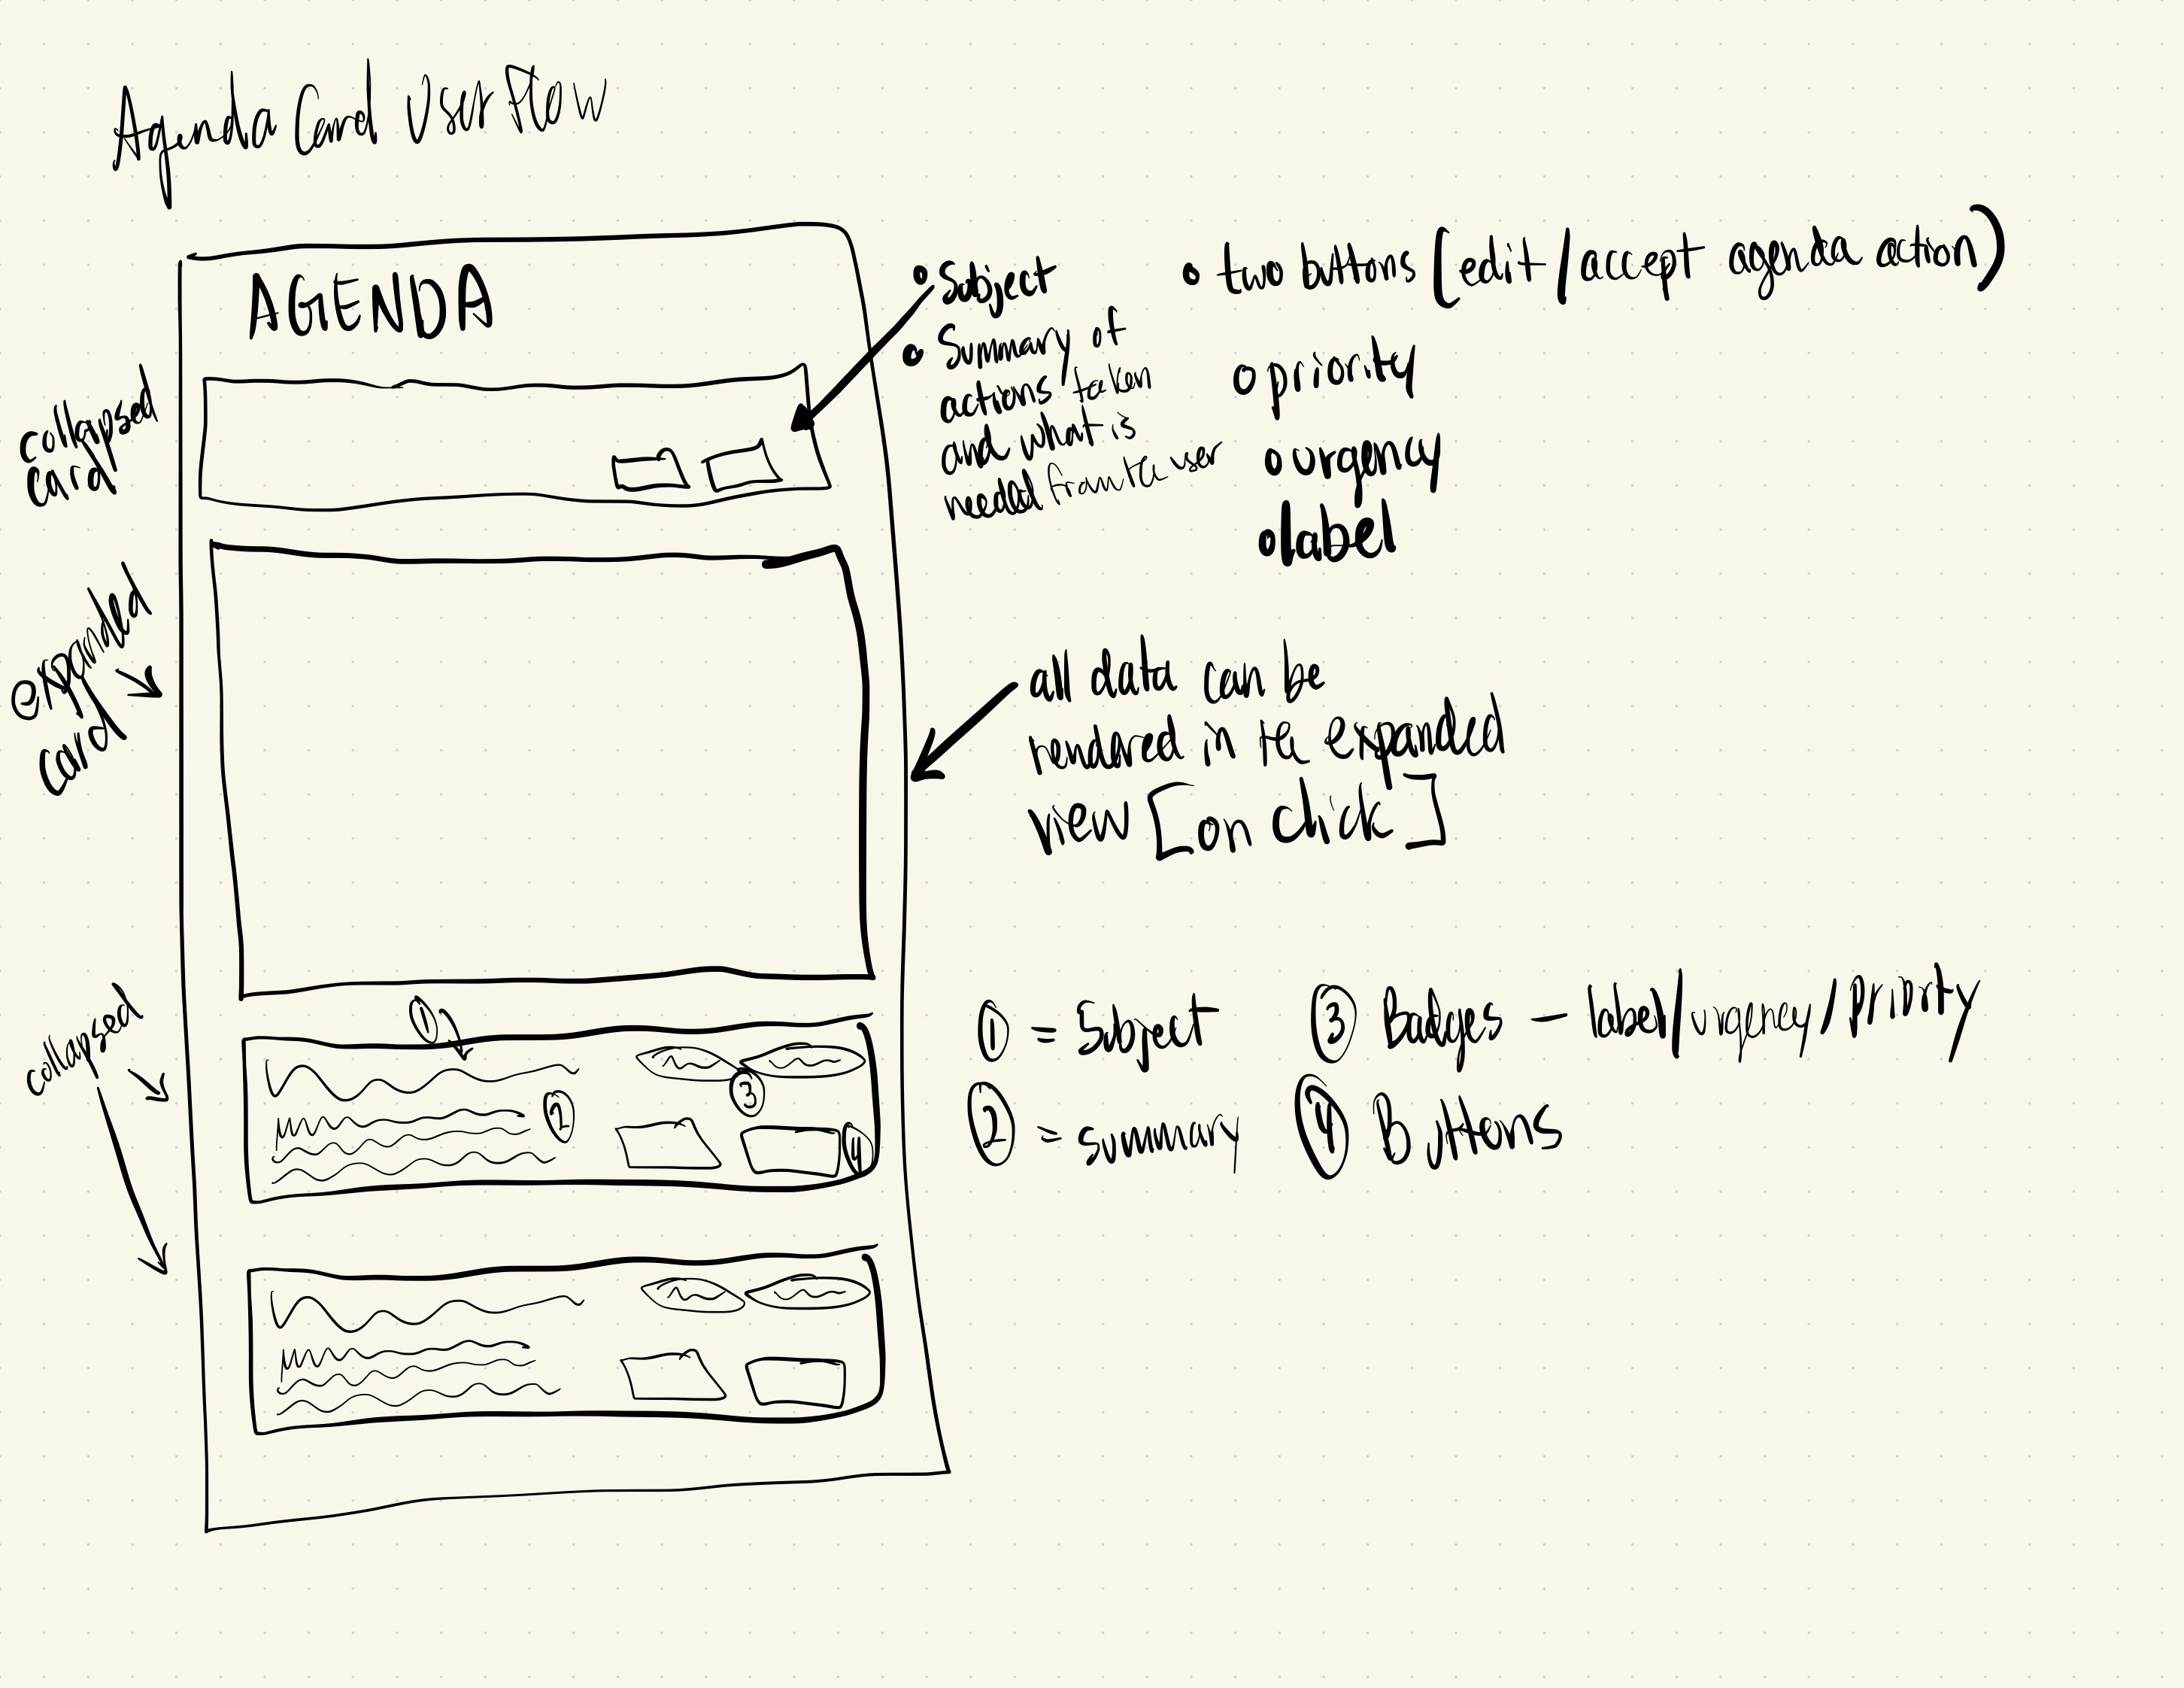 Agenda Card User Flow
AGENDA
collapsed
card
• Subject
• Summary of
actions taken
and what is
needed from the user
• two buttons (edit/accept agenda action)
• priority
• urgency
• label
expanded
card
all data can be
rendered in the expanded
view [on click]
collapsed
1
2
3
4
① = Subject
② = summary
③ Badges — label/urgency/Priority
④ Buttons